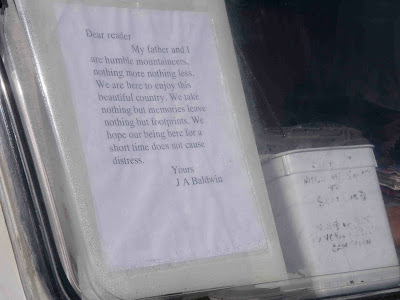 Dear reader
My father and I
are humble mountaineers,
nothing more nothing less.
We are here to enjoy this
beautiful country. We take
nothing but memories leave
nothing but footprints. We
hope our being here for a
short time does not cause
distress.
Yours
J A Baldwin